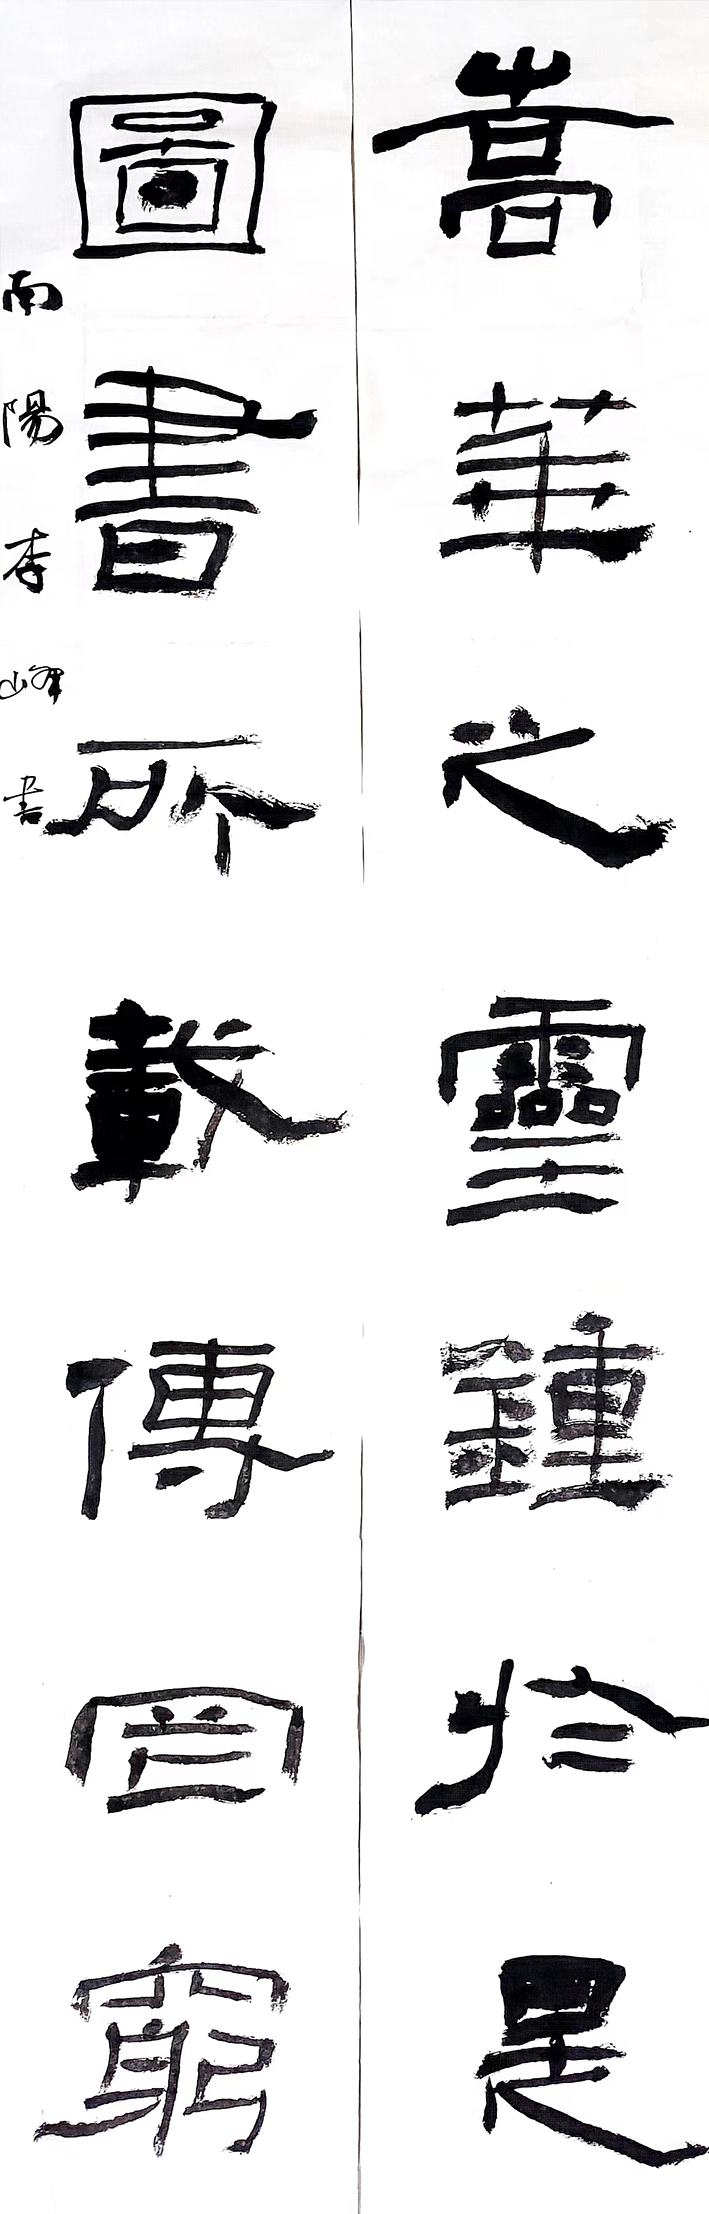 嵩華之靈鍾於是
圖書所載傳罔窮
南陽李峰書